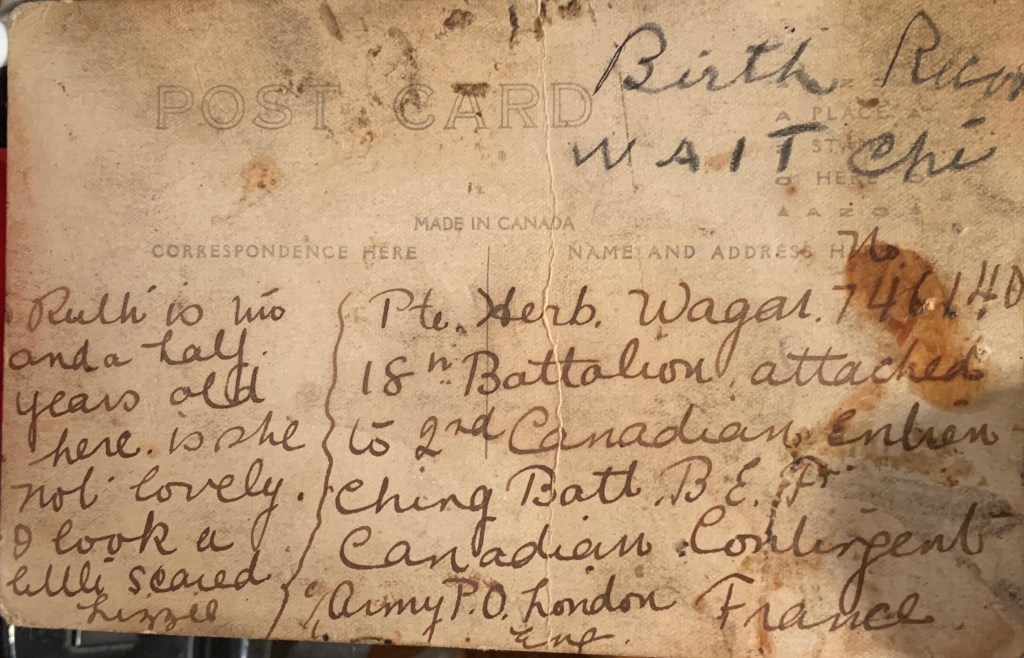 POST CARD
Birth
WAIT Chi
PLACE
HERE
AZO
MADE IN CANADA
CORRESPONDENCE HERE
NAME AND ADDRESS H
No
Ruth is two
and a half.
years old
here. is she
not lovely.
I look a
little scared
Lizzie
Pte. Herb. Wagar. 746140
18th Battalion, attached
to 2nd Canadian Entren-
ching Batt. B. E. Fr
Canadian Contingent
% Army P.O. London France.
Eng.